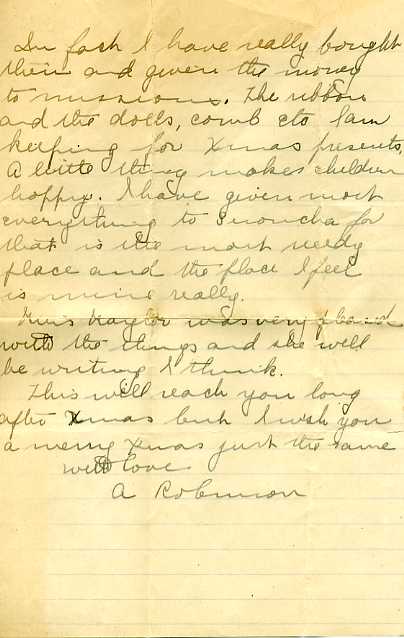 In fact I have really bought
them and given the money
to missions. The ribbon
and the dolls, comb etc I am
keeping for Xmas presents,
A little thing makes children
happy. I have given most
everything to for
that is the most needy
place and the place I feel
is mine really.
was very
with the things and she will
be writing I think.
This will reach you long
after Xmas but I wish you
a merry Xmas just the same
with love
A Robinson